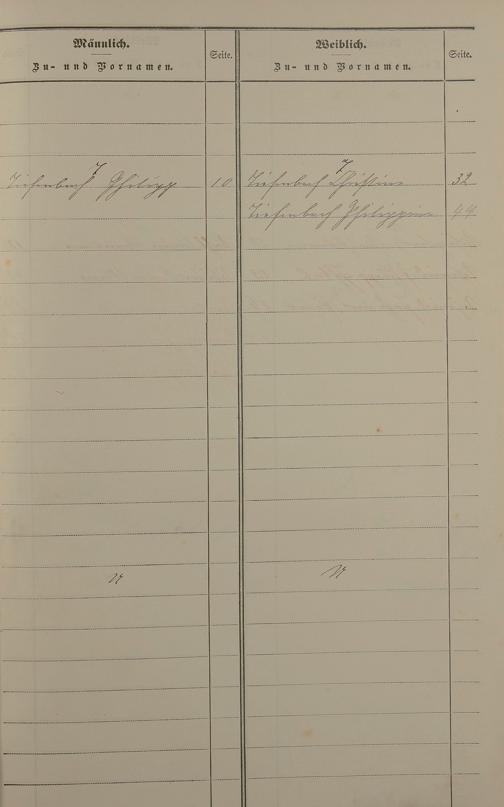 Männlich.
Zu- und Vornamen.
Seite.
T
Tiefenbach Philipp 10
U
Weiblich.
Zu- und Vornamen.
Seite.
T
Tiefenbach Christine 32
Tiefenbach Philippine 44
U